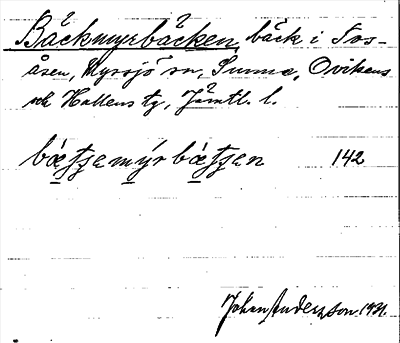 Bäckmyrbäcken, bäck i Tos-
åsen, Myssjö sn, Sunne, Ovikens
och Hallens tg, Jämtl. l.
142
Johan Andersson 1931.